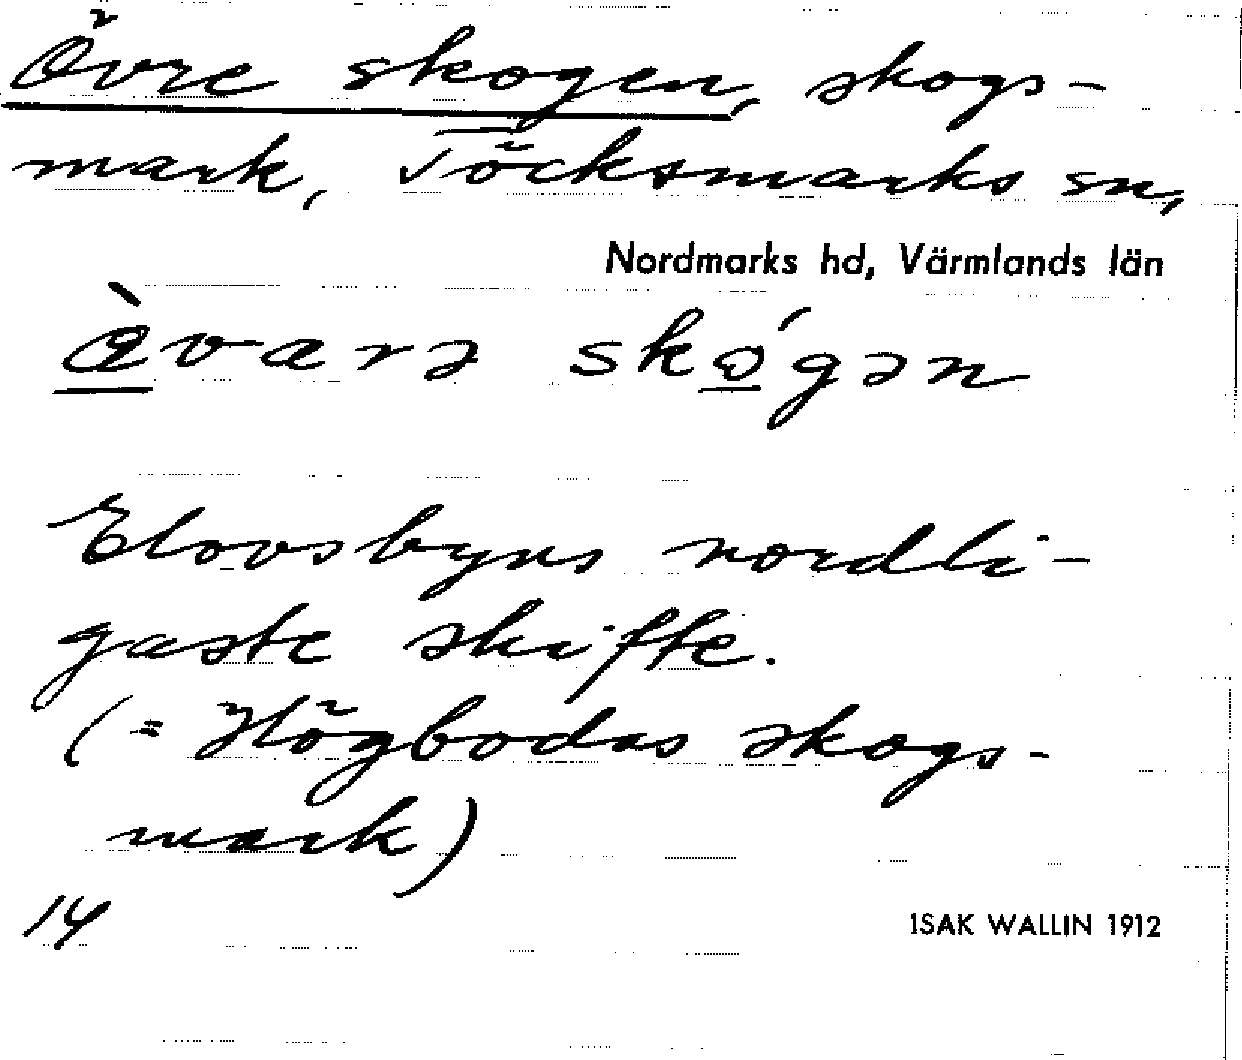 Övre skogen, skogs-
mark, Töcksmarks sn,
Nordmarks hd, Värmlands län
ə̀varə skógən
Elovsbyns nordli-
gaste skifte.
(= Högbodas skogs-
mark)
14
ISAK WALLIN 1912